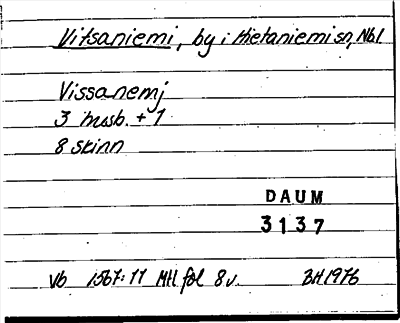 Vitsaniemi, by i Hietaniemi sn, Nbl
Vissanemj
3 husb. + 1
8 skinn
DAUM
3137
Vb 1567:11 MH fol 8 v. BH 1976